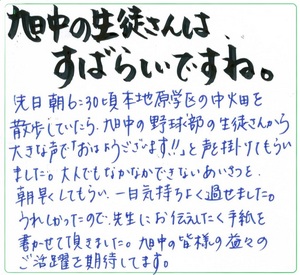 旭中の生徒さんは
すばらしいですね。
先日朝6:30頃本地原学区の中畑を
散歩していたら、旭中の野球部の生徒さんから
大きな声で「おはようございます!!」と声を掛けてもらい
ました。大人でもなかなかできないあいさつを
朝早くしてもらい、一日気持ちよく過せました。
うれしかったので、先生にお伝えしたく手紙を
書かせて頂きました。旭中の皆様の益々の
ご活躍を期待してます。